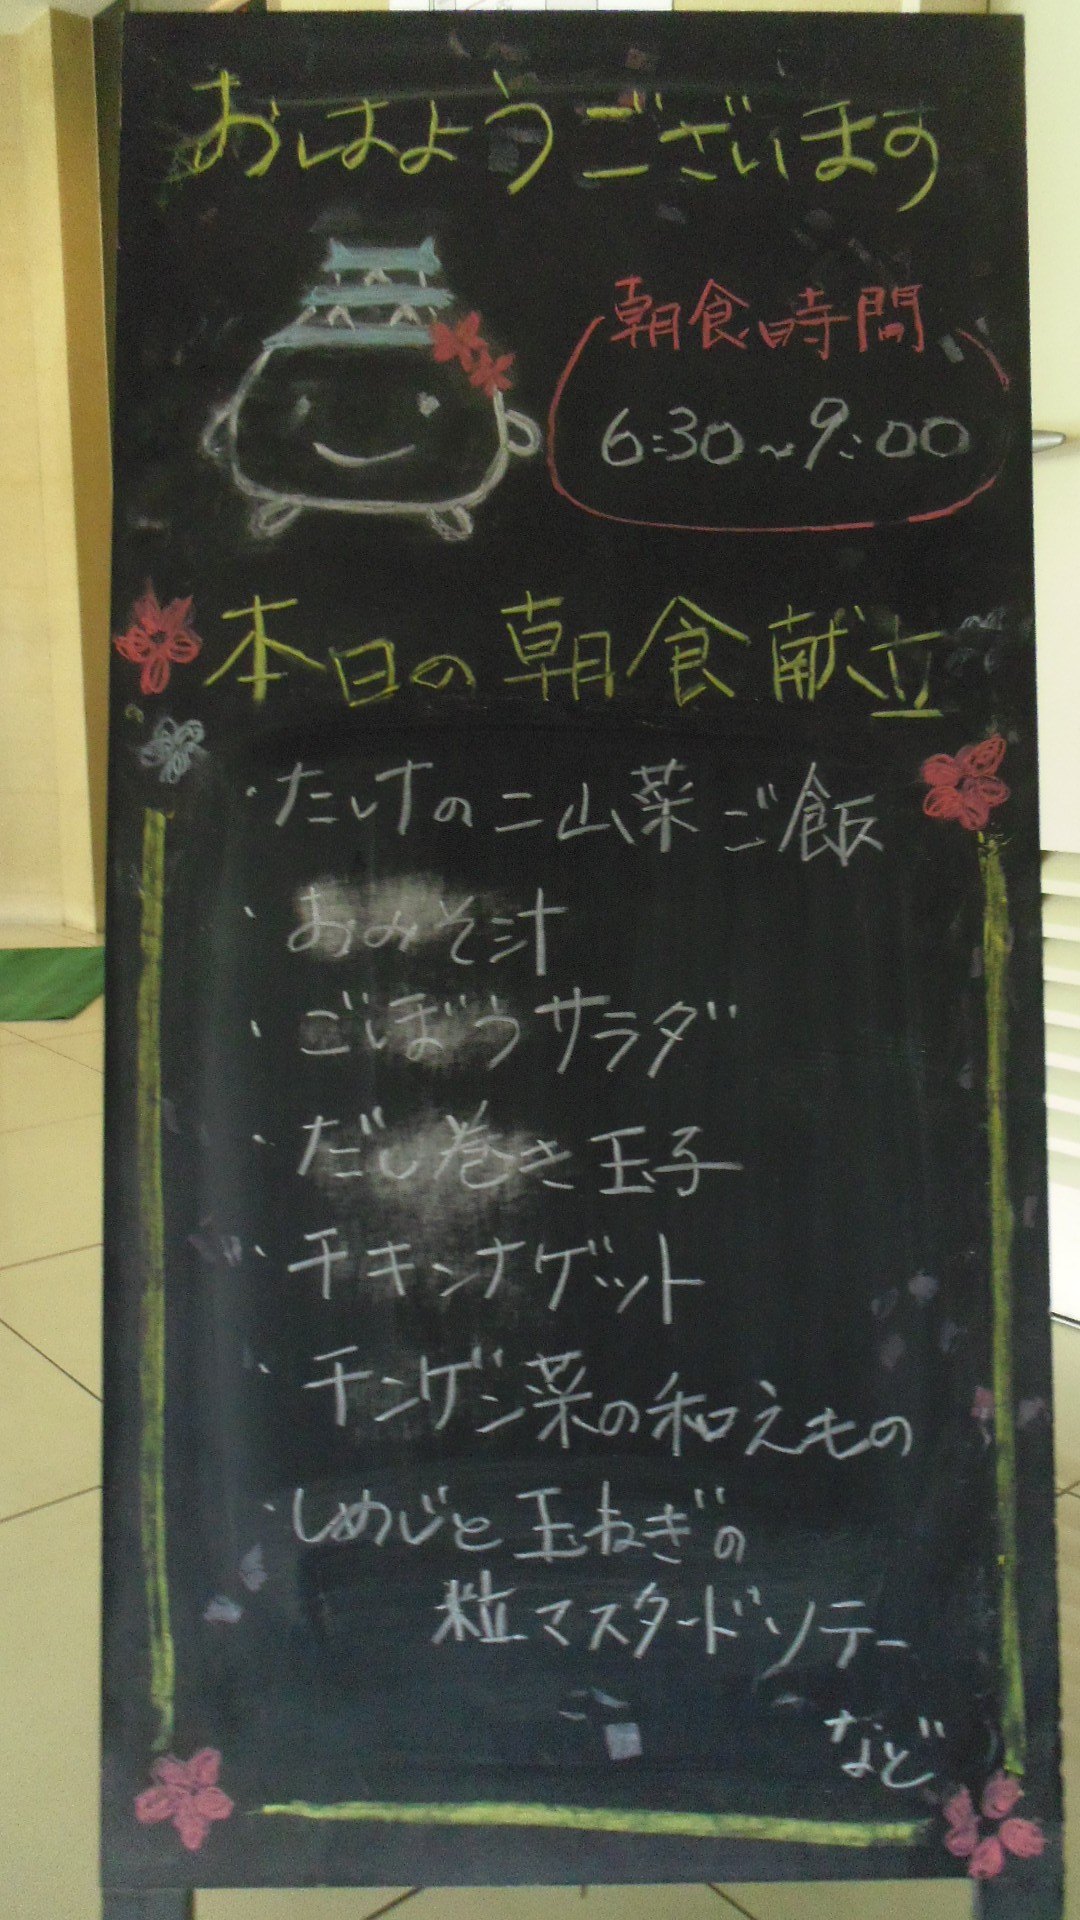 おはようございます
朝食時間
6:30~9:00
本日の朝食献立
・たけのこ山菜ご飯
・おみそ汁
・ごぼうサラダ
・だし巻き玉子
・チキンナゲット
・チンゲン菜の和えもの
・しめじと玉ねぎの
粒マスタードソテー
など